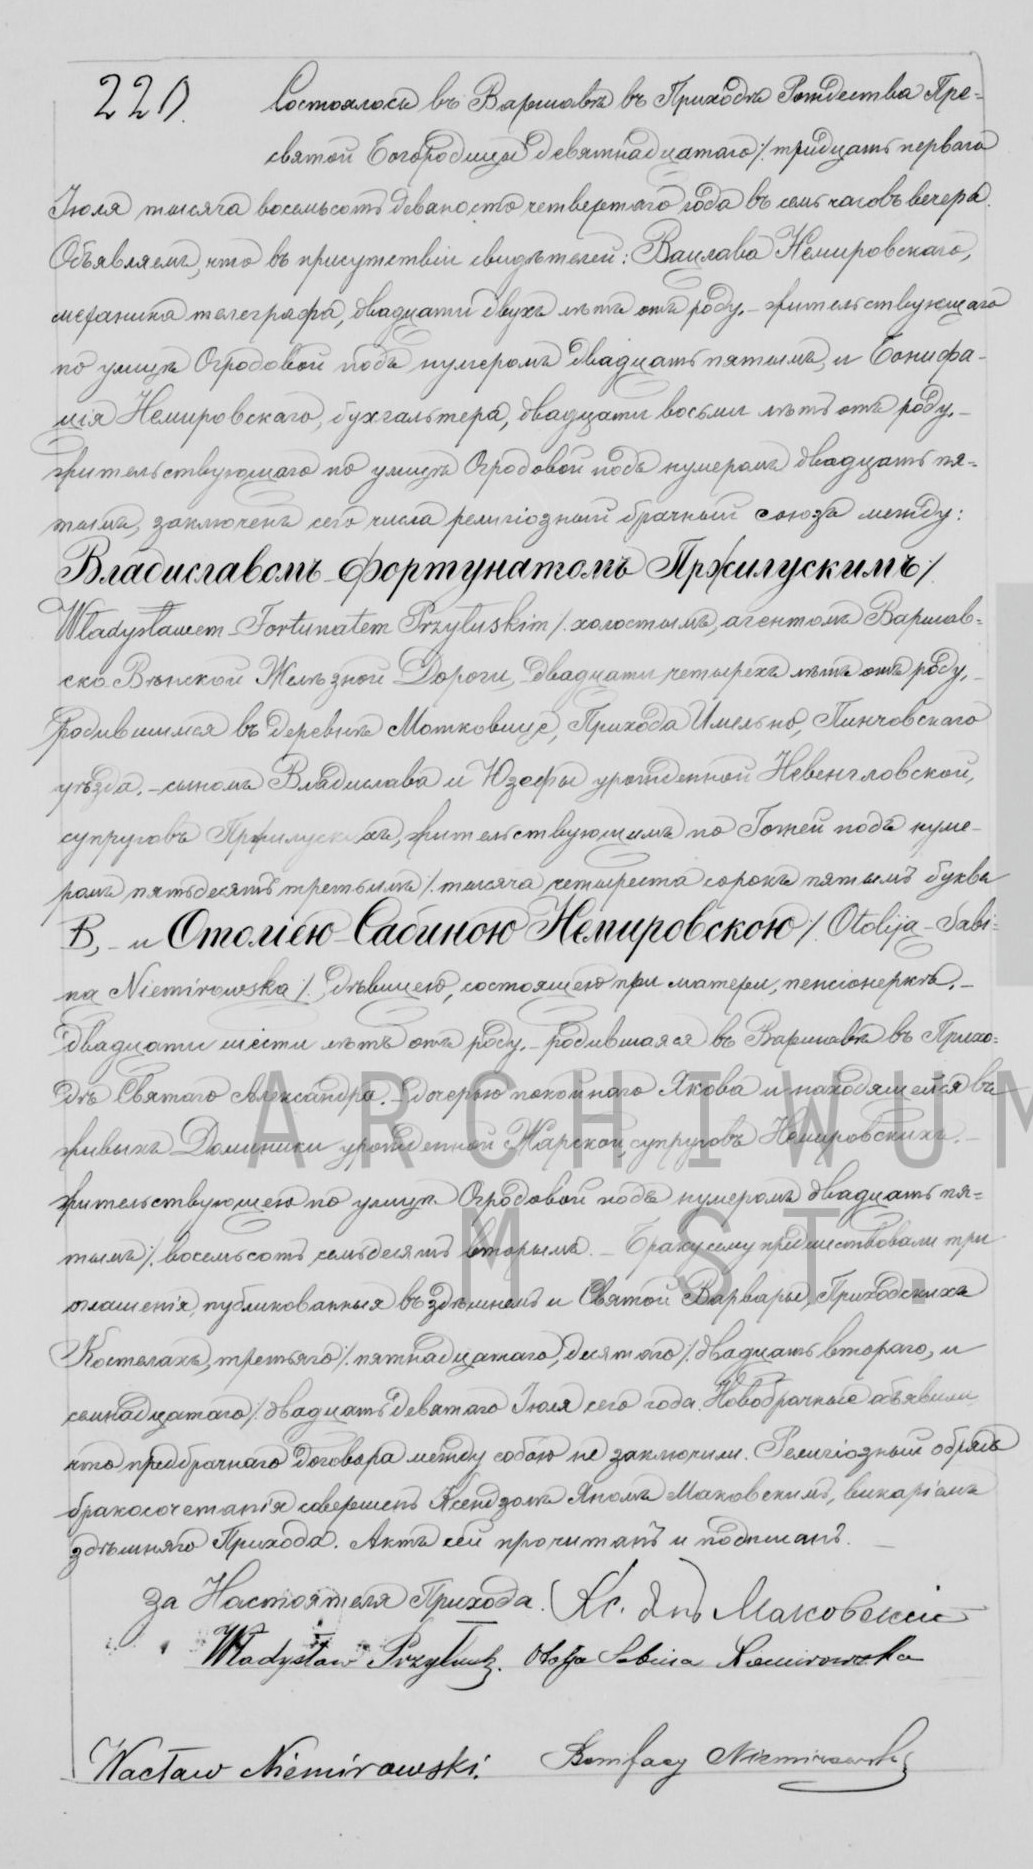 220. Состоялось въ Варшавѣ въ Приходѣ Рождества Пре-
святой Богородицы девятнадцатаго /. тридцать перваго
Іюля тысяча восемьсотъ девяносто четвертаго года въ семь часовъ вечера.
Объявляемъ, что въ присутствіи свидѣтелей: Вацлава Немировскаго,
механика телеграфа, двадцати двухъ лѣтъ отъ роду, – жительствующаго
по улицѣ Огродовой подъ нумеромъ двадцать пятымъ, и Бонифа-
ція Немировскаго, бухгальтера, двадцати восьми лѣтъ отъ роду, –
жительствующаго по улицѣ Огродовой подъ нумеромъ двадцать пя-
тымъ, заключенъ сего числа религіозный брачный союзъ между:
Владиславомъ-Фортунатомъ Пржилускимъ /.
Władysławem-Fortunatem Przyłuskim /. холостымъ, агентомъ Варшав-
ско Вѣнской Желѣзной Дороги, двадцати четырехъ лѣтъ отъ роду, –
родившимся въ деревнѣ Мотковице, Прихода Имельно, Пинчовскаго
уѣзда, – сыномъ Владислава и Юзефы урожденной Невенгловской,
супруговъ Пржилускихъ, жительствующимъ по Гожей подъ нуме-
ромъ пятьдесятъ третьимъ /. тысяча четыреста сорокъ пятымъ буквы
В, – и Отолiею-Сабиною Немировскою /. Otolija-Sabi-
na Niemirowska /. дѣвицею, состоящею при матери, пенсіонеркѣ, –
двадцати шести лѣтъ отъ роду, – родившаяся въ Варшавѣ въ Прихо-
дѣ Святаго Александра, – дочерью покойнаго Якова и находящейся въ
живыхъ Доминики урожденной Жарской, супруговъ Немировскихъ, –
жительствующею по улицѣ Огродовой подъ нумеромъ двадцать пя-
тымъ /. восемьсотъ семьдесятъ вторымъ. – Браку сему предшествовали три
оглашенія, публикованныя въ здѣшнемъ и Святой Варвары Приходскихъ
Костелахъ, третьяго /. пятнадцатаго, десятого /. двадцать втораго, и
семнадцатаго /. двадцать девятаго Іюля сего года. Новобрачные объявили
что предбрачнаго договора между собою не заключили. Религіозный обрядъ
бракосочетанія совершенъ Ксендзомъ Яномъ Маковскимъ, викаріемъ
здѣшняго Прихода. Актъ сей прочитанъ и подписанъ. –
За Настоятеля Прихода. Кс. Янъ Маковскій
Władysław Przyłuski. Otolja Sabina Niemirowska
Wacław Niemirowski. Bonifacy Niemirowski
ARCHIWUM
M ST.